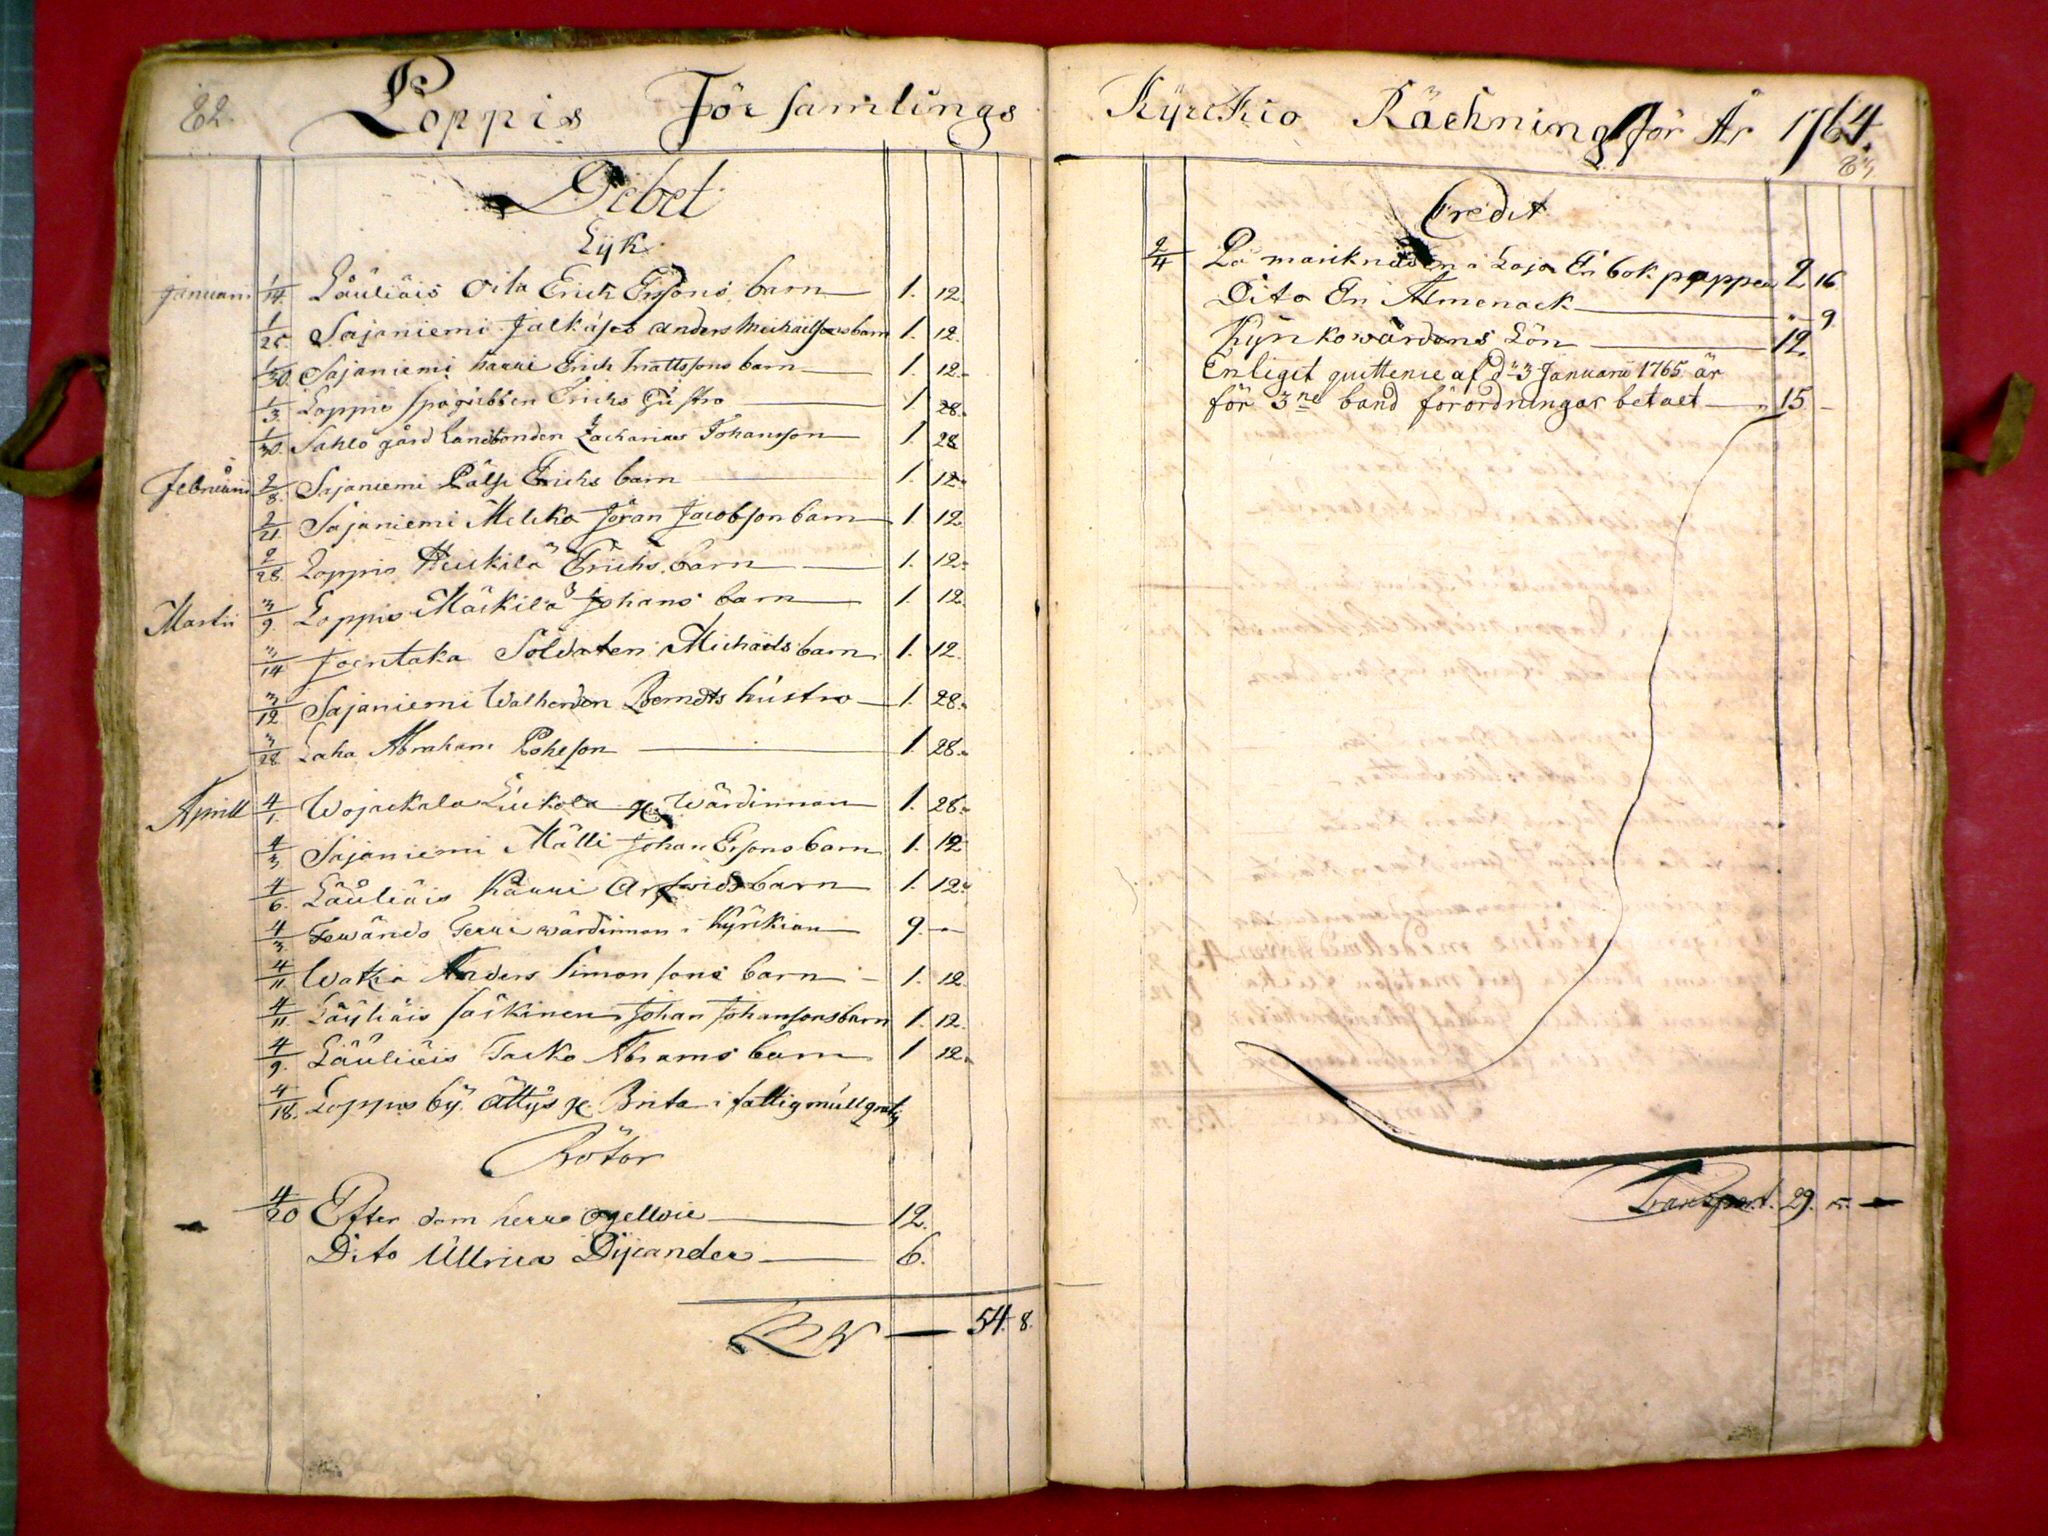 82.
Loppis Församlings
Debet
Lyk
Januarii 1/14. Läuliäis Oila Erich Ersons barn 1. 12.
1/25. Sajaniemi Jalkases anders Michaelssons barn 1. 12.
1/30. Sajaniemi harri Erich Mattssons barn 1. 12.
1/3. Loppis spögubben Erichs Hustro 1. 28.
1/30. Sahlo gård Landbonden Zacharias Johansson 1. 28
Februarii 2/8. Sajaniemi Pälsi Erichs barn 1. 12.
2/21. Sajaniemi Melcko Jöran Jacobson barn 1. 12.
2/28. Loppis Heickilä Erichs barn 1. 12.
Martii 3/9. Loppis Mäckilä Johans barn 1. 12.
3/14 Joentaka Soldaten Michaels barn 1. 12.
3/12 Sajaniemi Berndts hustro 1. 28.
3/28 Laka Abraham 1. 28.
Aprill 4/1. Wojackala Wärdinnan 1. 28.
4/3 Sajaniemi Mälli Johan Ersons barn 1. 12
4/6. Läuliäis harri Arfwids barn 1. 12.
4/3. Terri wärdinnan i Kyrckian 9.
4/11. Anders Simonsons barn 1. 12.
4/11. Läyliäis Säskinen Johan Johansons barn 1. 12.
4/9. Läuliäis Tacko Abrams barn 1 12.
4/18. Loppis by. Ättys Brita i fattigmull gratis
Rötor
4/20 Efter dom herr ogellwie 12.
Dito Ullrica Dijcander 6.
54. 8.
Kyrckio Räckning för År 1764.
83
Credit
2/4 På marcknaden i Loja En bok papper 2 16
Dito En Almenack " 9
Kyrckowärdens Lön 12.
Enligit quittence af d. 3 Januarii 1765 är
för 3ne band förordningar betaet 15
Transport. 29.